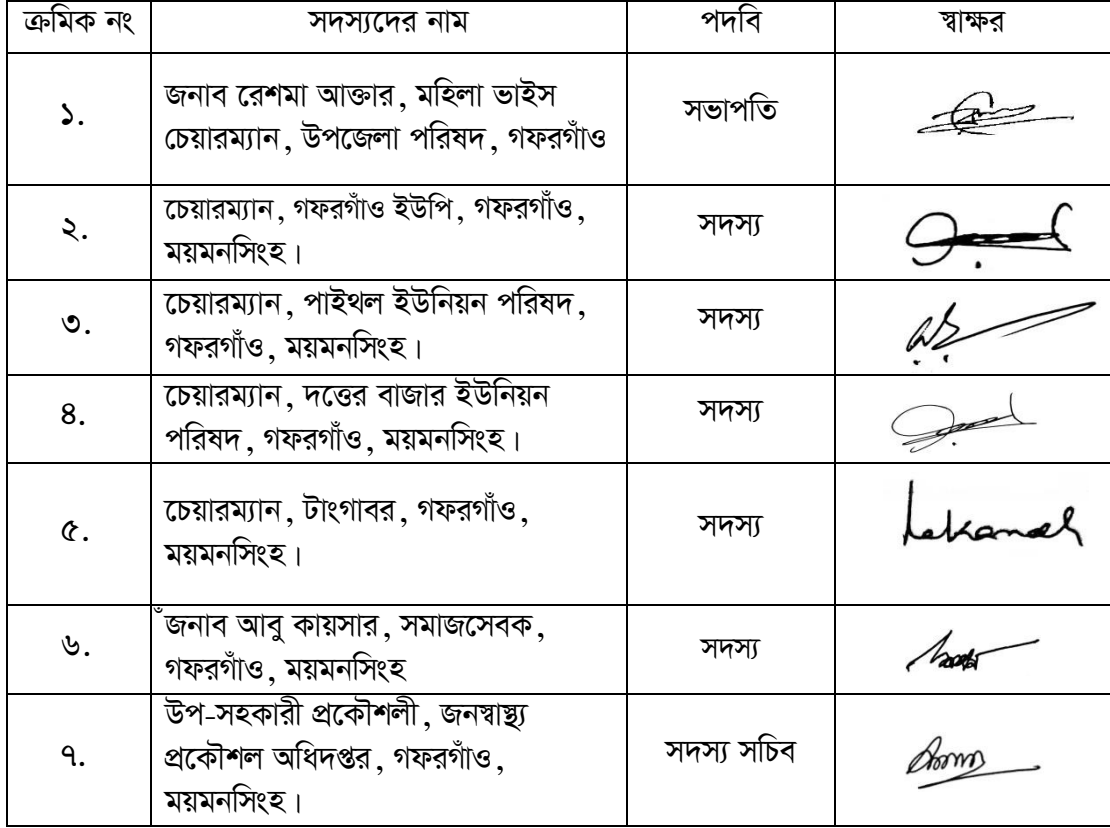 ক্রমিক নং সদস্যদের নাম পদবি স্বাক্ষর
১. জনাব রেশমা আক্তার, মহিলা ভাইস
চেয়ারম্যান, উপজেলা পরিষদ, গফরগাঁও সভাপতি
২. চেয়ারম্যান, গফরগাঁও ইউপি, গফরগাঁও,
ময়মনসিংহ। সদস্য
৩. চেয়ারম্যান, পাইথল ইউনিয়ন পরিষদ,
গফরগাঁও, ময়মনসিংহ। সদস্য
৪. চেয়ারম্যান, দত্তের বাজার ইউনিয়ন
পরিষদ, গফরগাঁও, ময়মনসিংহ। সদস্য
৫. চেয়ারম্যান, টাংগাবর, গফরগাঁও,
ময়মনসিংহ। সদস্য
৬. ঁজনাব আবু কায়সার, সমাজসেবক,
গফরগাঁও, ময়মনসিংহ সদস্য
৭. উপ-সহকারী প্রকৌশলী, জনস্বাস্থ্য
প্রকৌশল অধিদপ্তর, গফরগাঁও,
ময়মনসিংহ। সদস্য সচিব